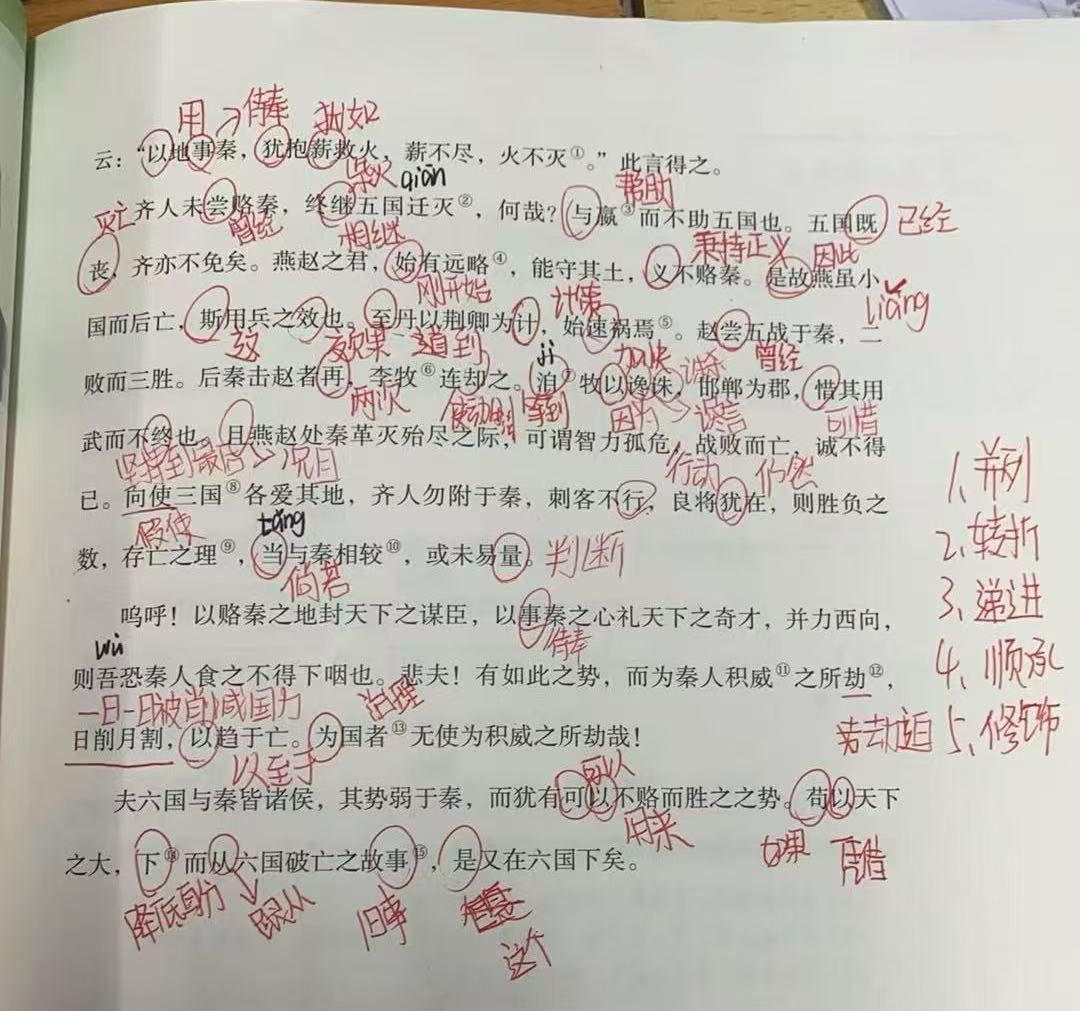 用→侍奉 犹如
云：“以地事秦，犹抱薪救火，薪不尽，火不灭①。”此言得之。
柴火 qiān 帮助
灭亡 齐人未尝赂秦，终继五国迁灭②，何哉？与嬴③而不助五国也。五国既 已经
曾经 相继 秉持正义 因此
丧，齐亦不免矣。燕赵之君，始有远略④，能守其土，义不赂秦。是故燕虽小
刚开始 计策 liǎng
国而后亡，斯用兵之效也。至丹以荆卿为计，始速祸焉⑤。赵尝五战于秦，二
这 效果 道到 jì 加快 诛杀 曾经
败而三胜。后秦击赵者再，李牧⑥连却之。洎⑦牧以谗诛，邯郸为郡，惜其用
两次 使动用 等到 因为→谗言 可惜
武而不终也。且燕赵处秦革灭殆尽之际，可谓智力孤危，战败而亡，诚不得
坚持到最后→况且 行动 仍然
已。向使三国⑧各爱其地，齐人勿附于秦，刺客不行，良将犹在，则胜负之
假使 tǎng
数，存亡之理⑨，当与秦相较⑩，或未易量。判断
倘若
呜呼！以赂秦之地封天下之谋臣，以事秦之心礼天下之奇才，并力西向，
wú 侍奉
则吾恐秦人食之不得下咽也。悲夫！有如此之势，而为秦人积威⑪之所劫⑫，
一日一日被削减国力 治理
日削月割，以趋于亡。为国者⑬无使为积威之所劫哉！
以至于 可以
夫六国与秦皆诸侯，其势弱于秦，而犹有可以不赂而胜之之势。苟以天下
用来 如果 凭借
之大，下⑭而从六国破亡之故事⑮，是又在六国下矣。
降低身分 跟从 旧事
这个
1、并列
2、转折
3、递进
4、顺承
5、修饰